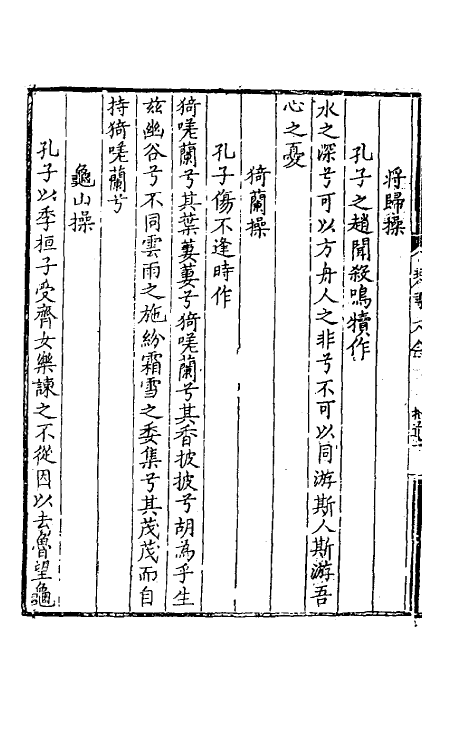 將歸操
孔子之趙聞殺鳴犢作
水之深兮可以方舟人之非兮不可以同游斯人斯游吾
心之憂
猗蘭操
孔子傷不逢時作
猗嗟蘭兮其葉萋萋兮猗嗟蘭兮其香披披兮胡為乎生
玆幽谷兮不同雲雨之施紛霜雪之委集兮其茂茂而自
持猗嗟蘭兮
龜山操
孔子以季桓子受齊女樂諫之不從因以去魯望龜